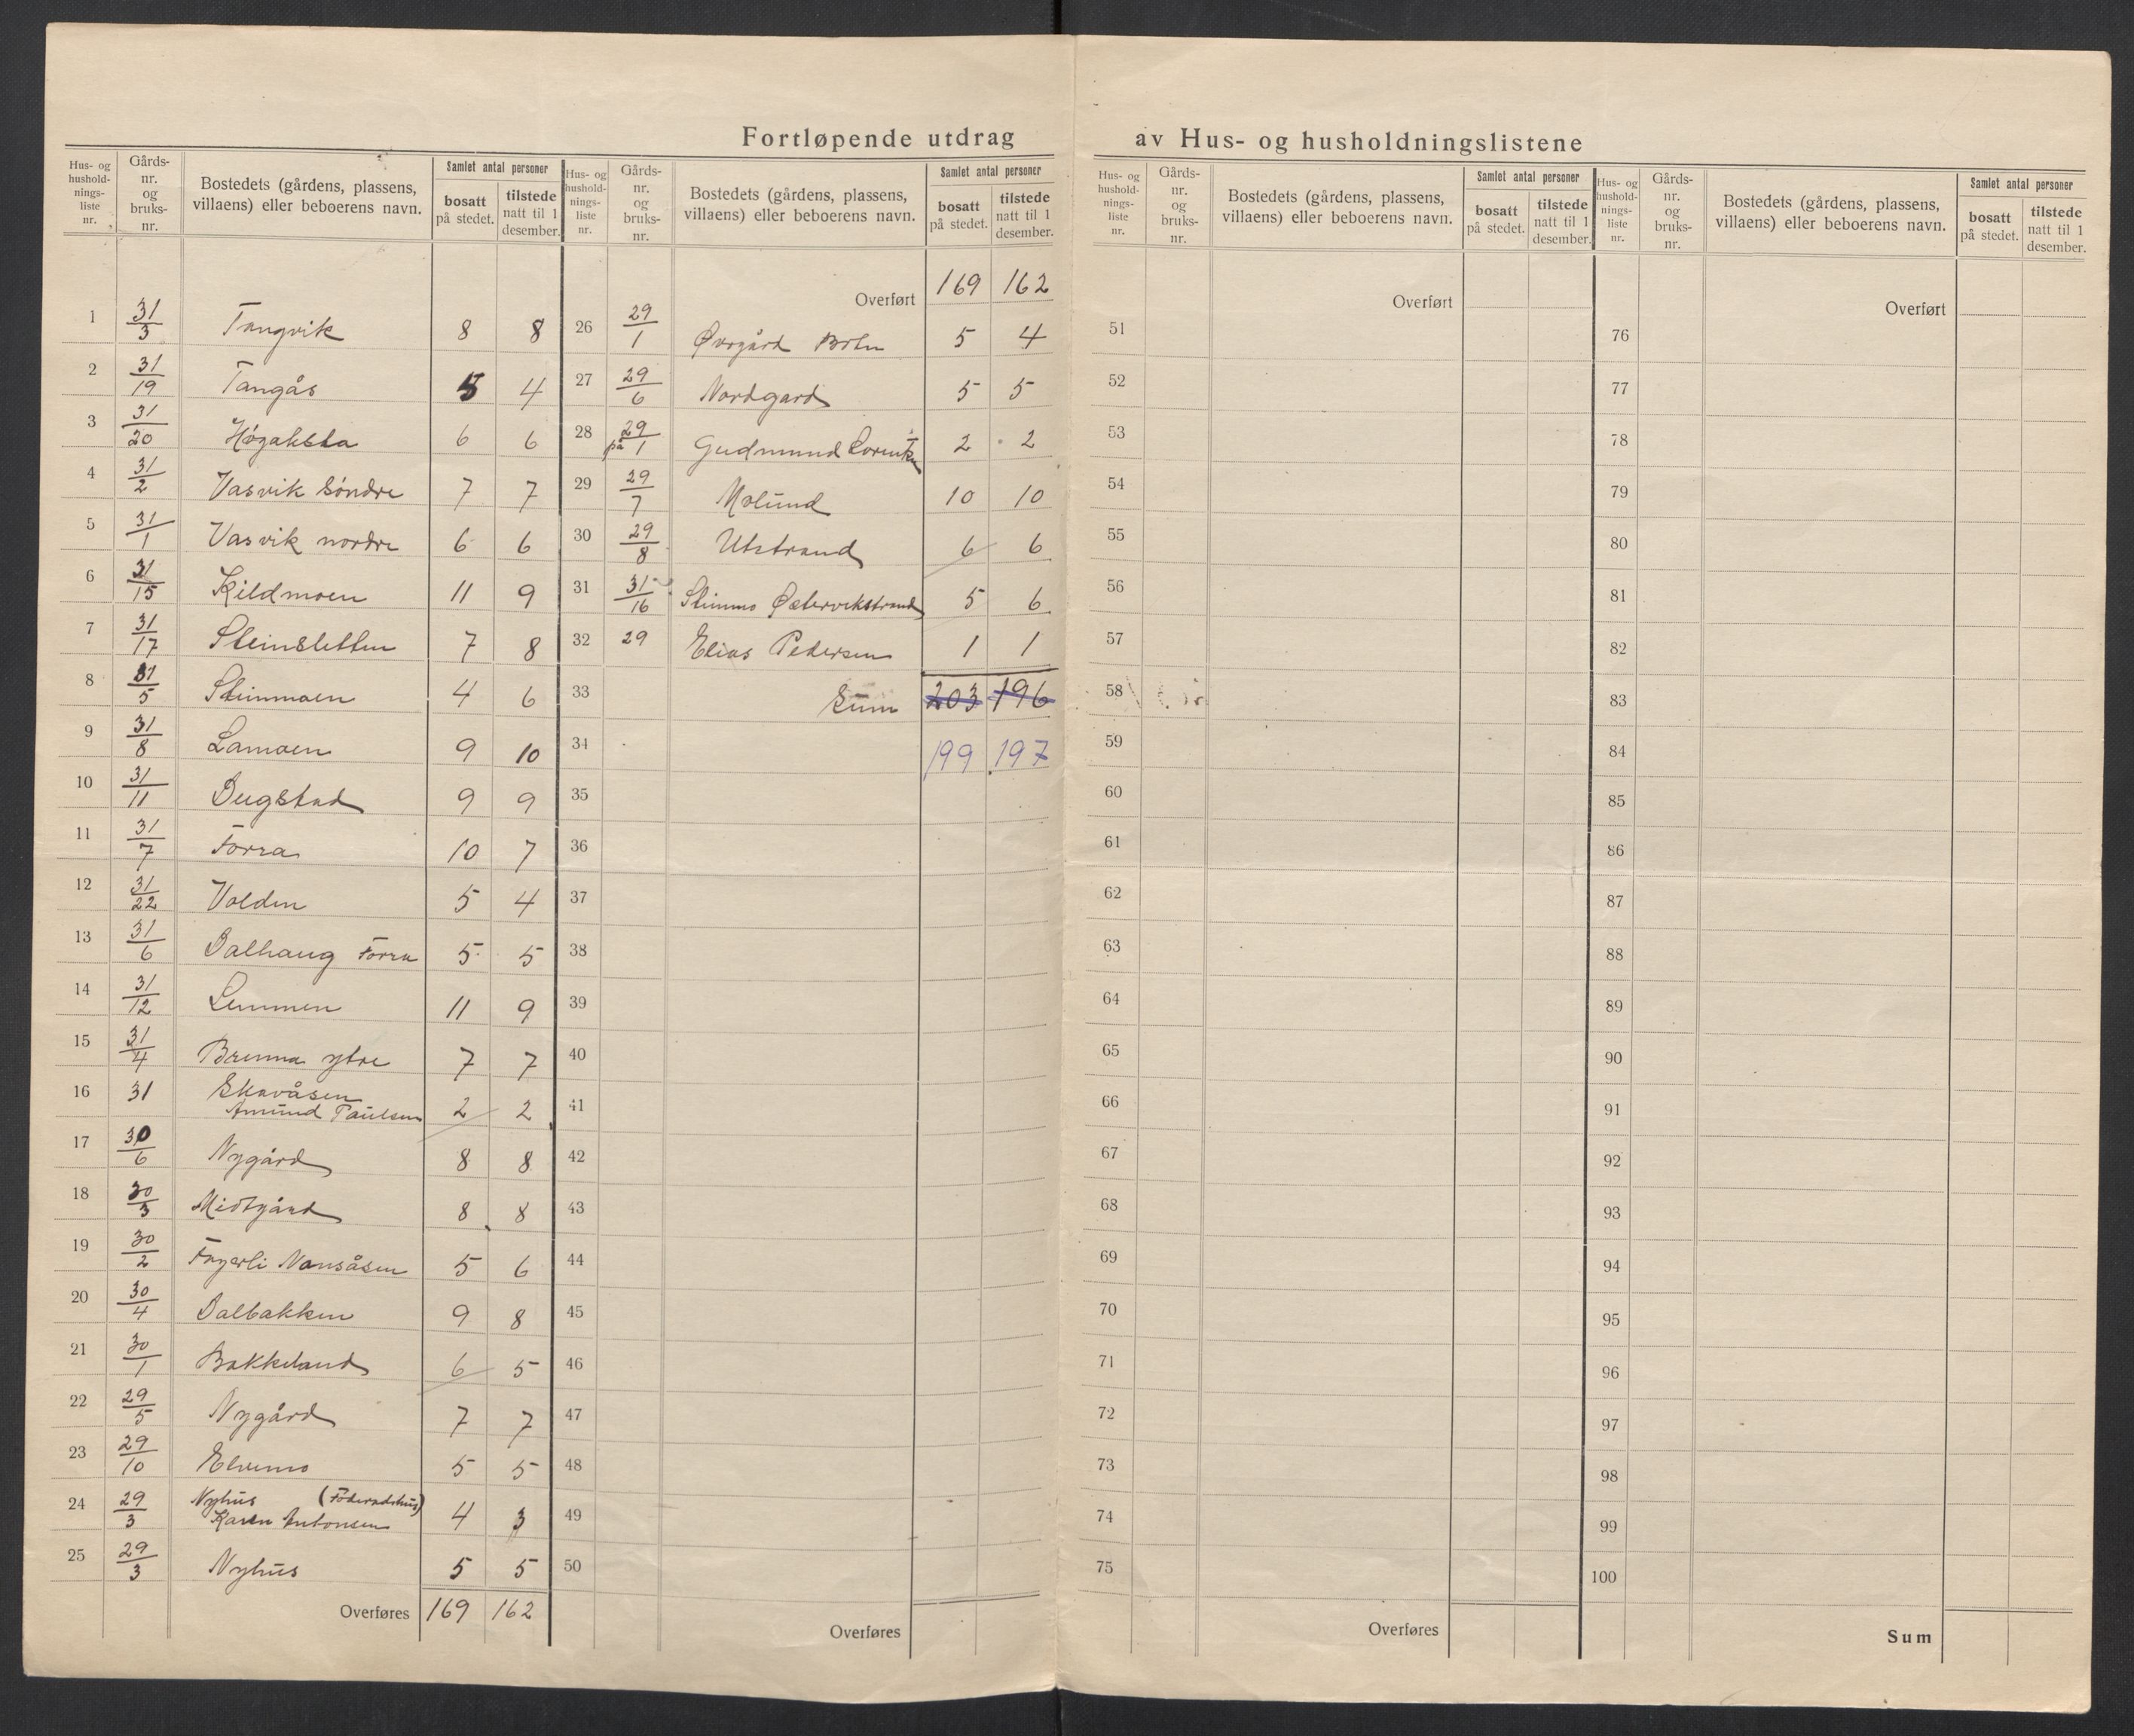 Fortløpende utdrag av Hus- og husholdningslistene
Hus- og husholdningsliste nr.
Gårds-nr. og bruks-nr.
Bostedets (gårdens, plassens, villaens) eller beboerens navn.
Samlet antal personer
bosatt på stedet.
tilstede natt til 1 desember.
1 31/3 Tangvik 8 8
2 31/19 Tangås 5 4
3 31/20 Høgaksla 6 6
4 31/2 Vasvik Søndre 7 7
5 31/1 Vasvik nordre 6 6
6 31/15 Kildmoen 11 9
7 31/17 Steinsletten 7 8
8 31/5 Steinmoen 4 6
9 31/8 Lamoen 9 10
10 31/11 Dugstad 9 9
11 31/7 Forra 10 7
12 31/22 Volden 5 4
13 31/6 Dalhaug Forra 5 5
14 31/12 Lemmen 11 9
15 31/4 Brenna ytre 7 7
16 31 Skavåsen
Amund Paulsen 2 2
17 30/6 Nygård 8 8
18 30/3 Midtgård 8 8
19 30/2 Fagerli Nonsåsen 5 6
20 30/4 Dalbakken 9 8
21 30/1 Bakkeland 6 5
22 29/5 Nygård 7 7
23 29/10 Elvemo 5 5
24 29/3 Nyhus (Föderådshus)
Karen Antonsen 4 3
25 29/3 Nyhus 5 5
Overføres 169 162
Hus- og husholdningsliste nr.
Gårds-nr. og bruks-nr.
Bostedets (gårdens, plassens, villaens) eller beboerens navn.
Samlet antal personer
bosatt på stedet.
tilstede natt til 1 desember.
Overført 169 162
26 29/1 Øvrgård Botn 5 4
27 29/6 Nordgard 5 5
28 på 29/1 Gudmund 2 2
29 29/7 Molund 10 10
30 29/8 Utstrand 6 6
31 31/16 Steinmo Østervikstrand 5 6
32 29 Elias Pedersen 1 1
33 Sum 203 196
34 199 197
35
36
37
38
39
40
41
42
43
44
45
46
47
48
49
50
Overføres
Hus- og husholdningsliste nr.
Gårds-nr. og bruks-nr.
Bostedets (gårdens, plassens, villaens) eller beboerens navn.
Samlet antal personer
bosatt på stedet.
tilstede natt til 1 desember.
Overført
51
52
53
54
55
56
57
58
59
60
61
62
63
64
65
66
67
68
69
70
71
72
73
74
75
Overføres
Hus- og husholdningsliste nr.
Gårds-nr. og bruks-nr.
Bostedets (gårdens, plassens, villaens) eller beboerens navn.
Samlet antal personer
bosatt på stedet.
tilstede natt til 1 desember.
Overført
76
77
78
79
80
81
82
83
84
85
86
87
88
89
90
91
92
93
94
95
96
97
98
99
100
Sum